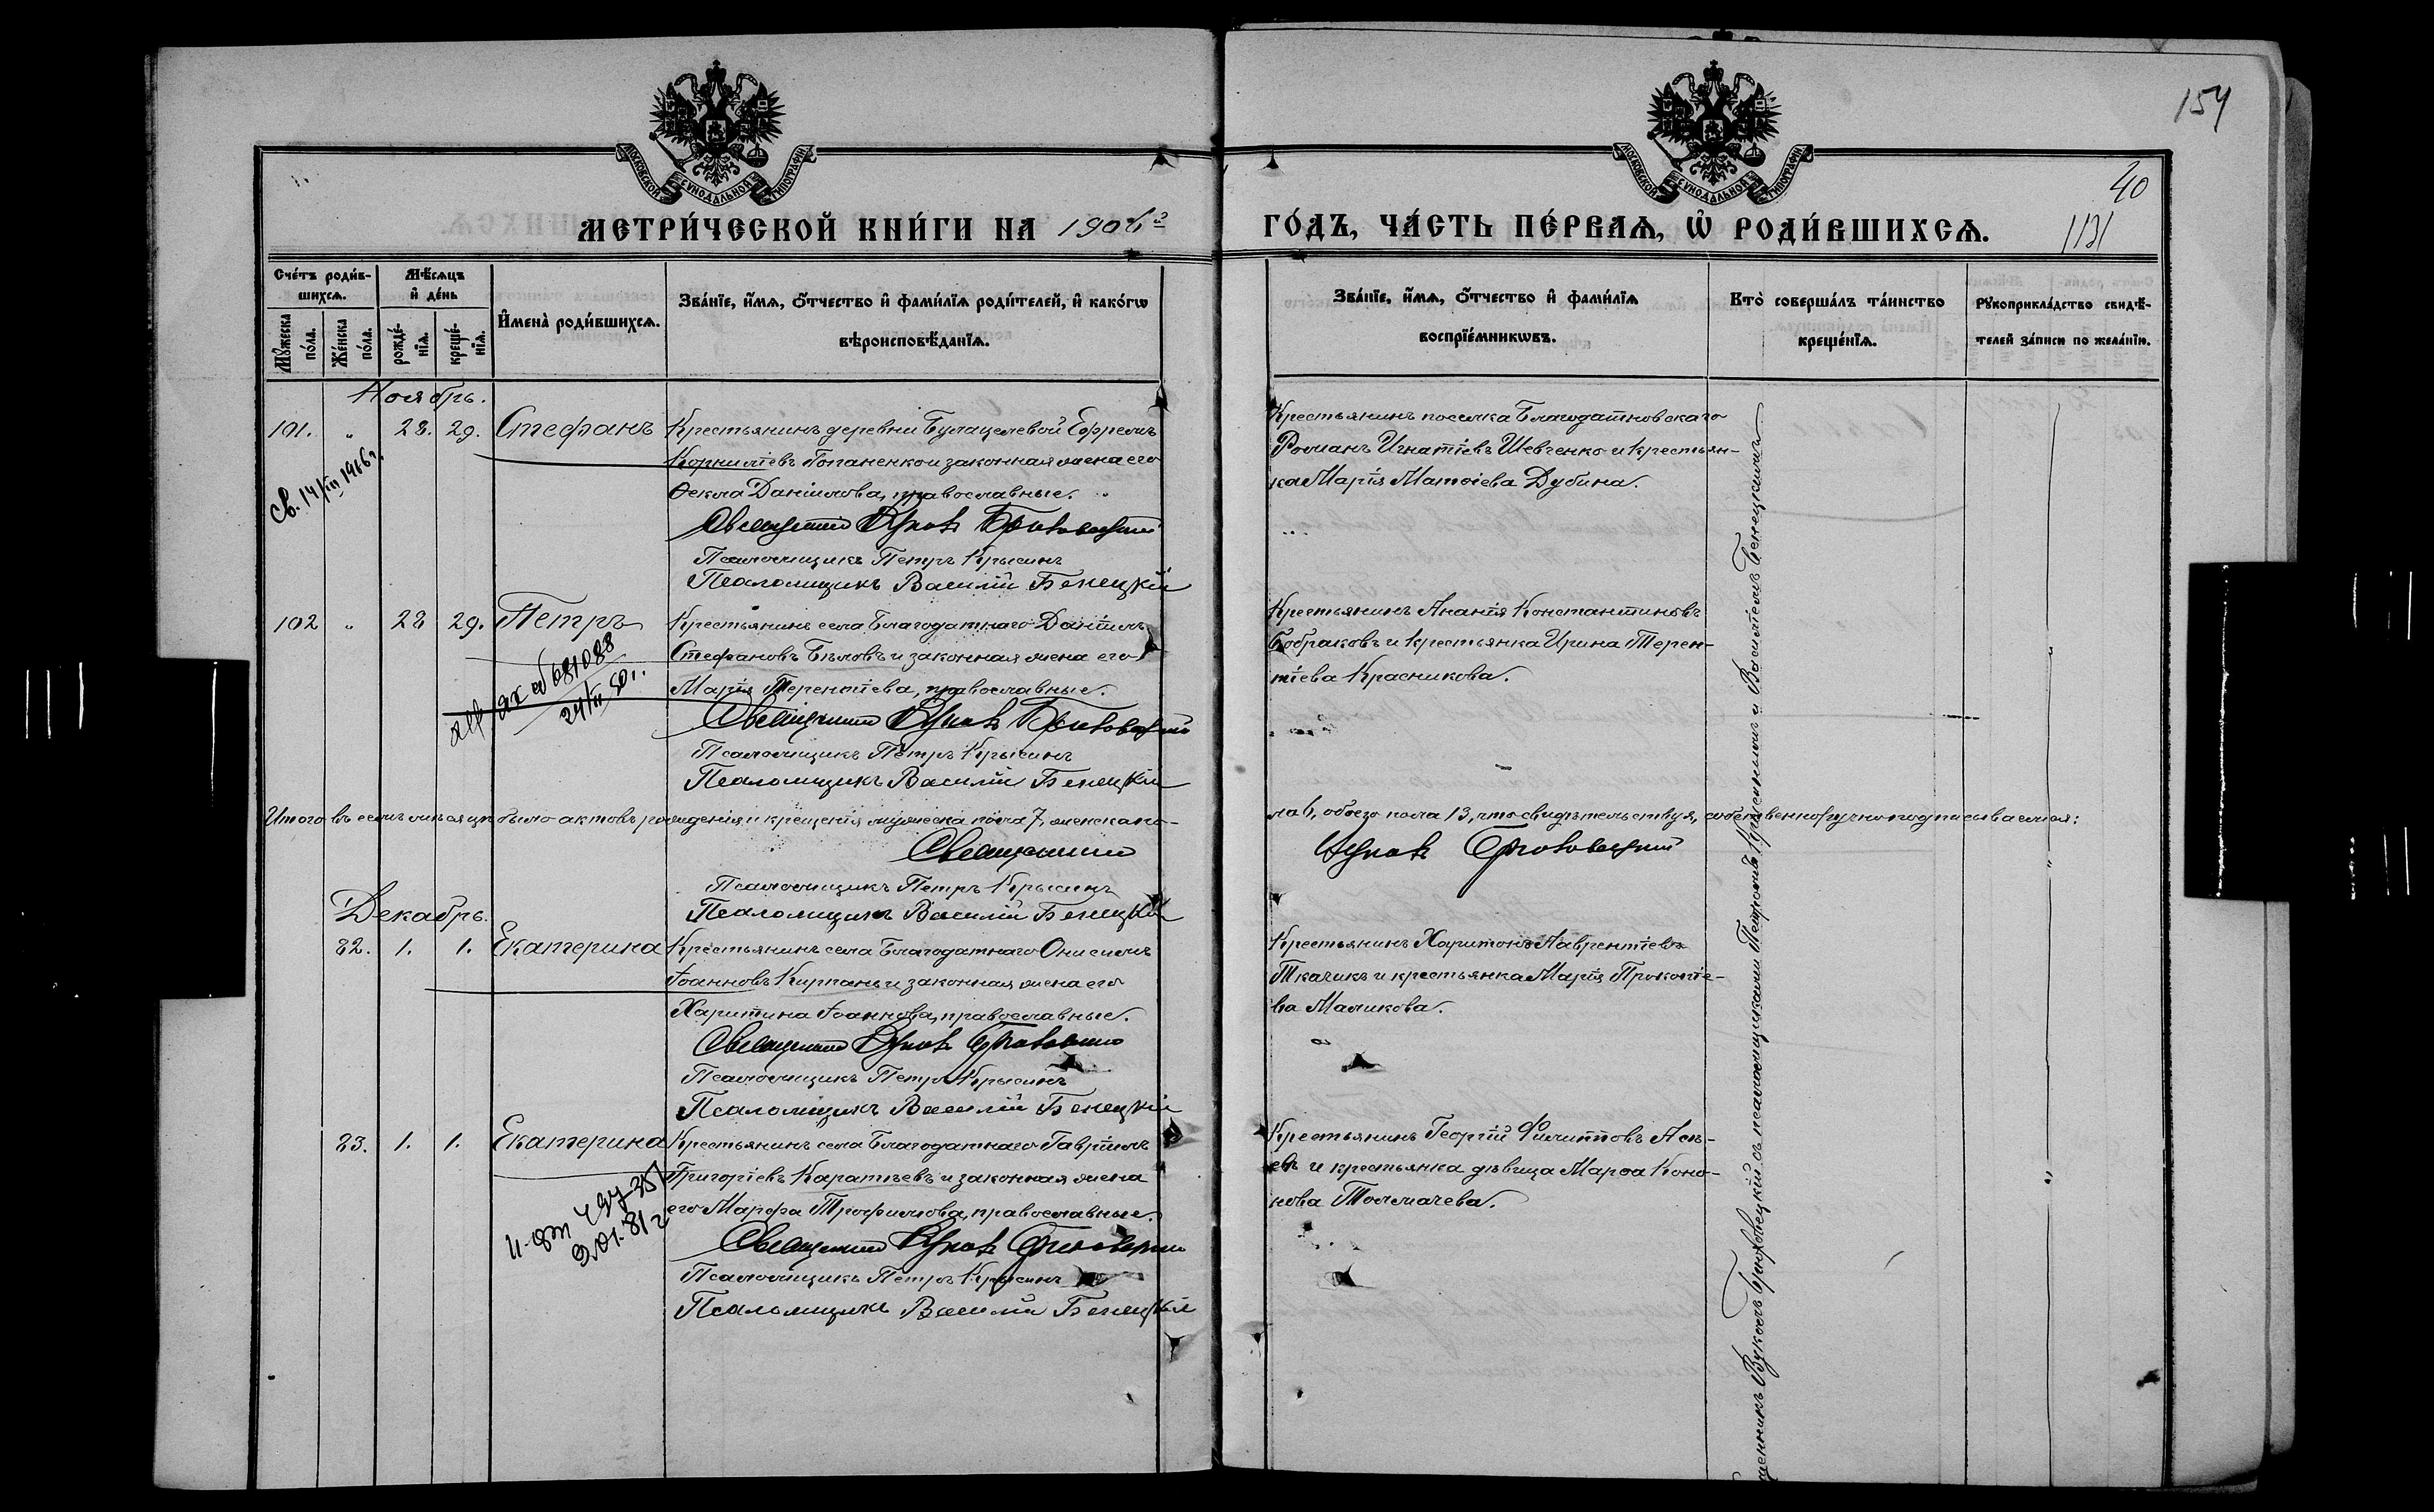 154
40
1131
МОСКОВСКОЙ СѴНОДАЛЬНОЙ ТИПОГРАФІИ
МОСКОВСКОЙ СѴНОДАЛЬНОЙ ТИПОГРАФІИ
МЕТРИ́ЧЕСКОЙ КНИ́ГИ НА 1906й
ГО́ДЪ, ЧА́СТЬ ПЕ́РВАѦ, Ѡ҆ РОДИ́ВШИХСѦ.
Сче́тъ роди́в-
шихсѧ.
Мꙋ́жеска по́ла.
Же́нска по́ла.
Мѣ́сѧцъ
и҆ де́нь
рожде́-
нїѧ.
креще́-
нїѧ.
И҆мена̀ роди́вшихсѧ.
Зва́нїе, и҆́мѧ, ѻ҆́тчество и҆ фами́лїѧ роди́телей, и҆ како́гѡ
вѣроисповѣ́данїѧ.
Зва́нїе, и҆́мѧ, ѻ҆́тчество и҆ фами́лїѧ
воспрїе́мникѡвъ.
Кто̀ соверша́лъ та́инство
креще́нїѧ.
Рꙋкоприкла́дство свидѣ́-
телей за́писи по жела́нїю.
Ноябрь.
101. „ 28. 29. Стефанъ
Крестьянинъ деревни Булацелевой Ефремъ
Корниліевъ Попаненко и законная жена его
Ѳекла Даніилова, православные.
Священникъ Вуколъ Брюховецкій
Псаломщикъ Петръ Крысинъ
Псаломщикъ Василій Бенецкій
Св. 14/III 1916 г.
Крестьянинъ поселка Благодатновскаго
Романъ Игнатіевъ Шевченко и крестьян-
ка Марія Матѳіева Дубина.
102 „ 28 29. Петръ
Крестьянинъ села Благодатнаго Даніилъ
Стефановъ Бѣловъ и законная жена его
Марія Терентіева, православные.
Священникъ Вуколъ Брюховецкій
Псаломщикъ Петръ Крысинъ
Псаломщикъ Василій Бенецкій
681088
Крестьянинъ Ананія Константиновъ
Бобраковъ и крестьянка Ирина Терен-
тіева Красникова.
Итого въ семъ мѣсяцѣ было актовъ рожденія и крещенія мужеска пола 7, женска по-
ла 6, обоего пола 13, что свидѣтельствуя, собственноручно подписываемся:
Священникъ Вуколъ Брюховецкій
Псаломщикъ Петръ Крысинъ
Псаломщикъ Василій Бенецкій
Декабрь.
82. 1. 1. Екатерина
Крестьянинъ села Благодатнаго Онисимъ
Іоанновъ Кирпань и законная жена его
Харитина Іоаннова, православные.
Священникъ Вуколъ Брюховецкій
Псаломщикъ Петръ Крысинъ
Псаломщикъ Василій Бенецкій
Крестьянинъ Харитонъ Лаврентіевъ
Ткачикъ и крестьянка Марія Прокопіе-
ва Маликова.
83. 1. 1. Екатерина
Крестьянинъ села Благодатнаго Гавріилъ
Григоріевъ Каратѣевъ и законная жена
его Марфа Трофимова, православные.
Священникъ Вуколъ Брюховецкій
Псаломщикъ Петръ Крысинъ
Псаломщикъ Василій Бенецкій
9.01.81 г
Крестьянинъ Георгій Филипповъ Асѣ-
евъ и крестьянка дѣвица Марѳа Коно-
нова Толмачева.
Вуколъ Брюховецкій съ псаломщиками Петромъ Крысинымъ и Василіемъ Бенецкимъ